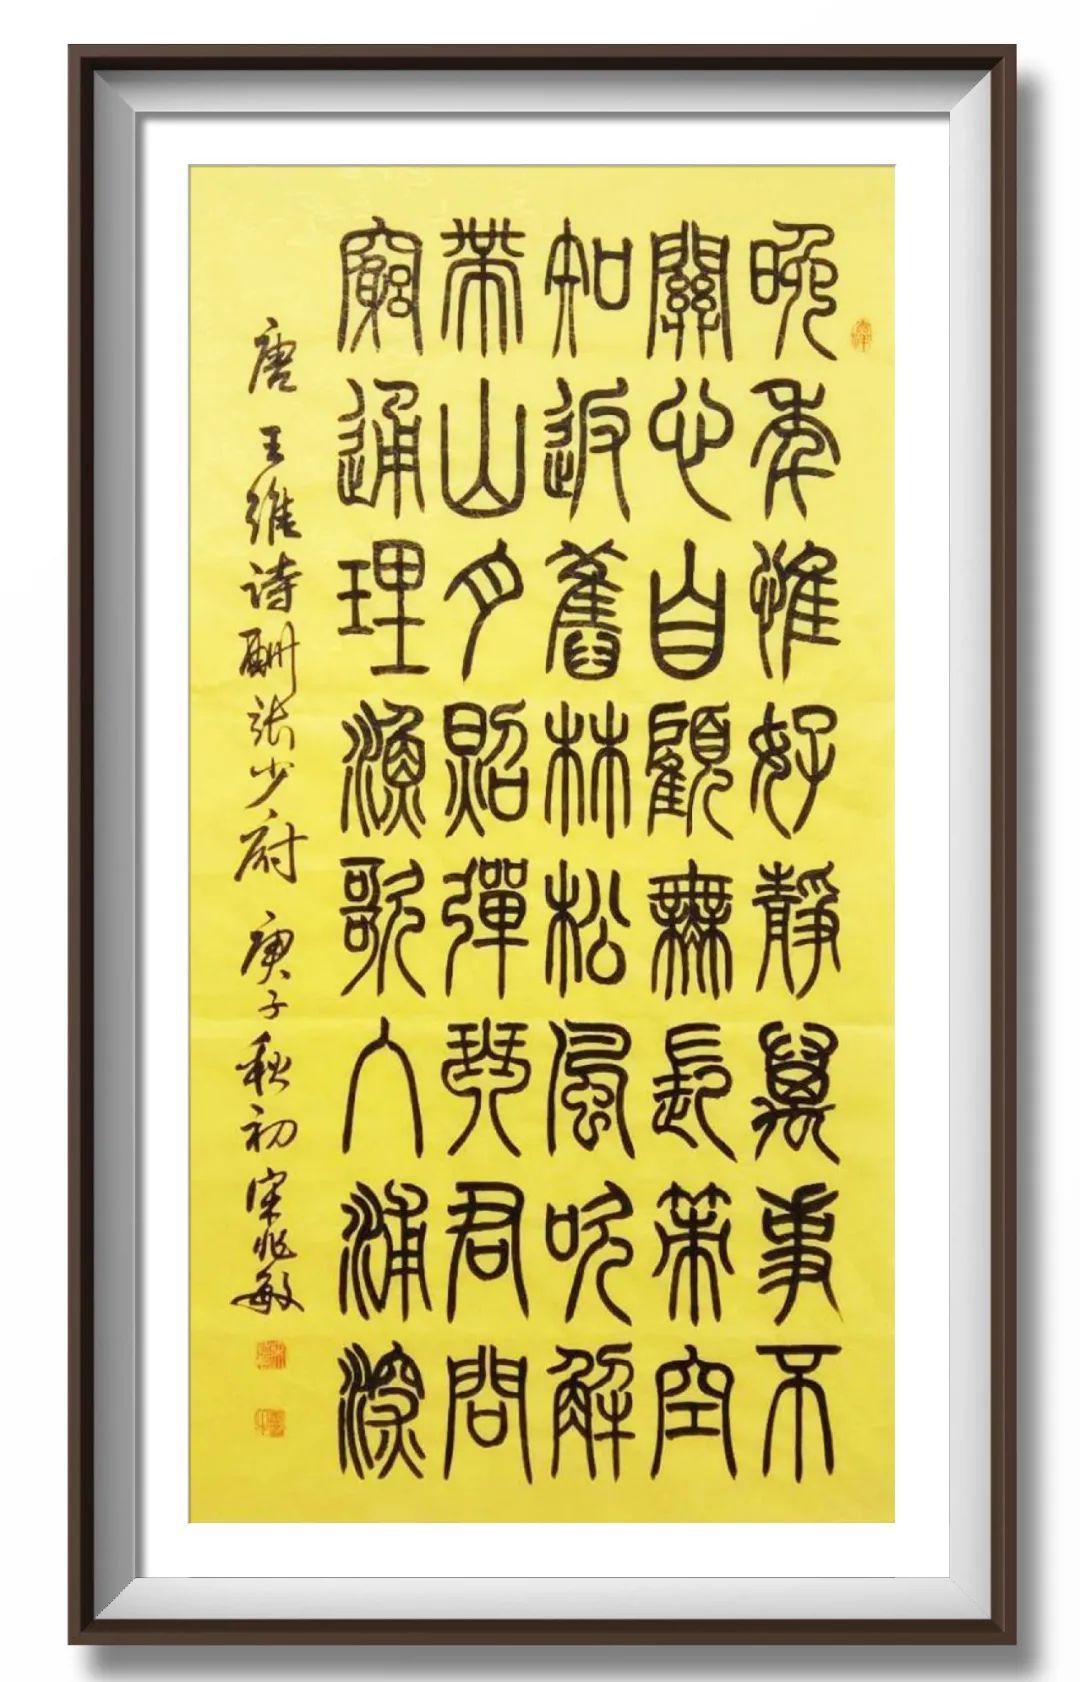 晚年惟好靜萬事不
關心自顧無長策空
知返舊林松風吹解
帶山月照彈琴君問
窮通理漁歌入浦深
唐 王維詩酬張少府 庚子秋初 宋兆敏